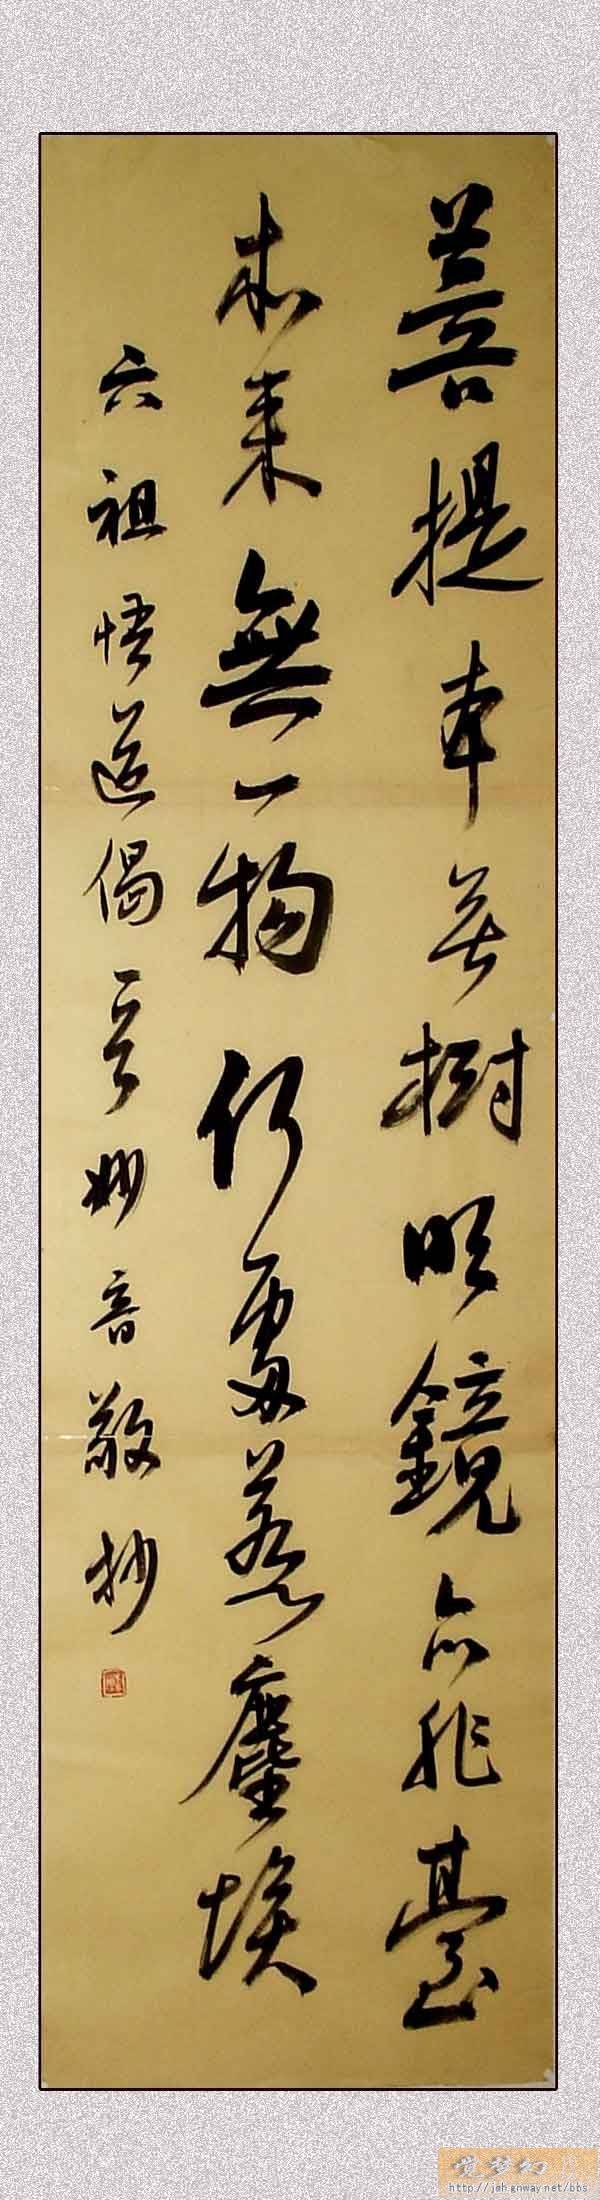 菩提本無樹明鏡亦非臺
本来無一物何處惹塵埃
六祖悟道偈 妙音敬抄
覺梦幻
http://jmh.gnway.net/bbs